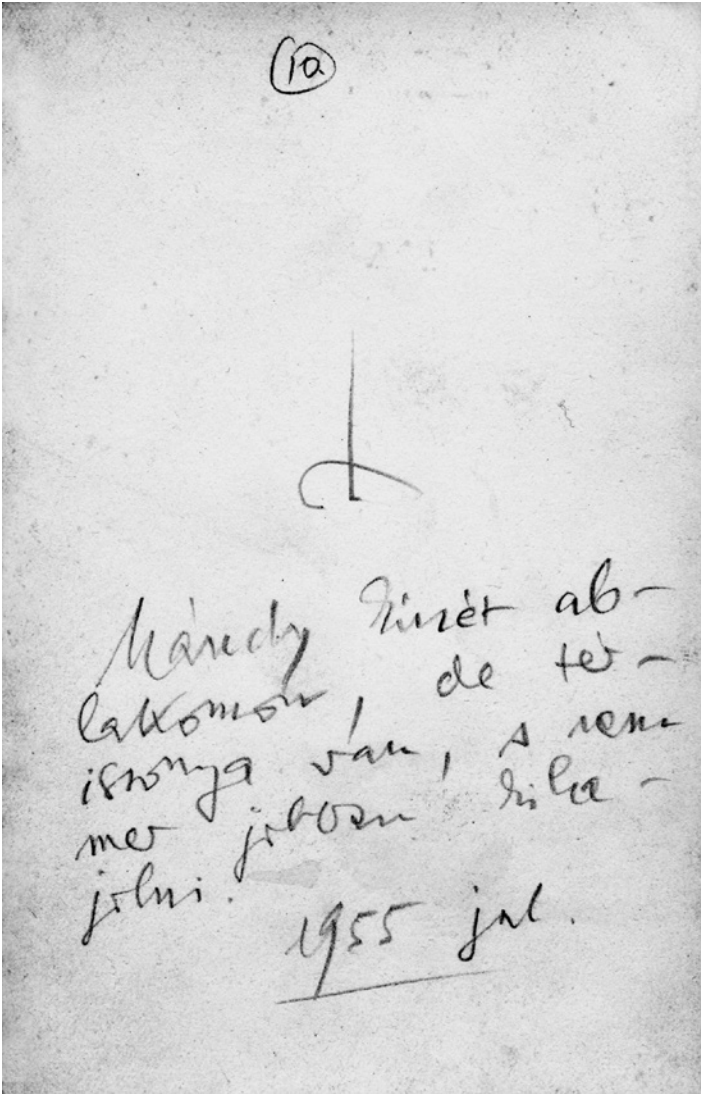 1a
Mándy kinéz ab-
lakomon, de tér-
iszonya van, s nem
mer jobban kiha-
jolni.
1955 jul.